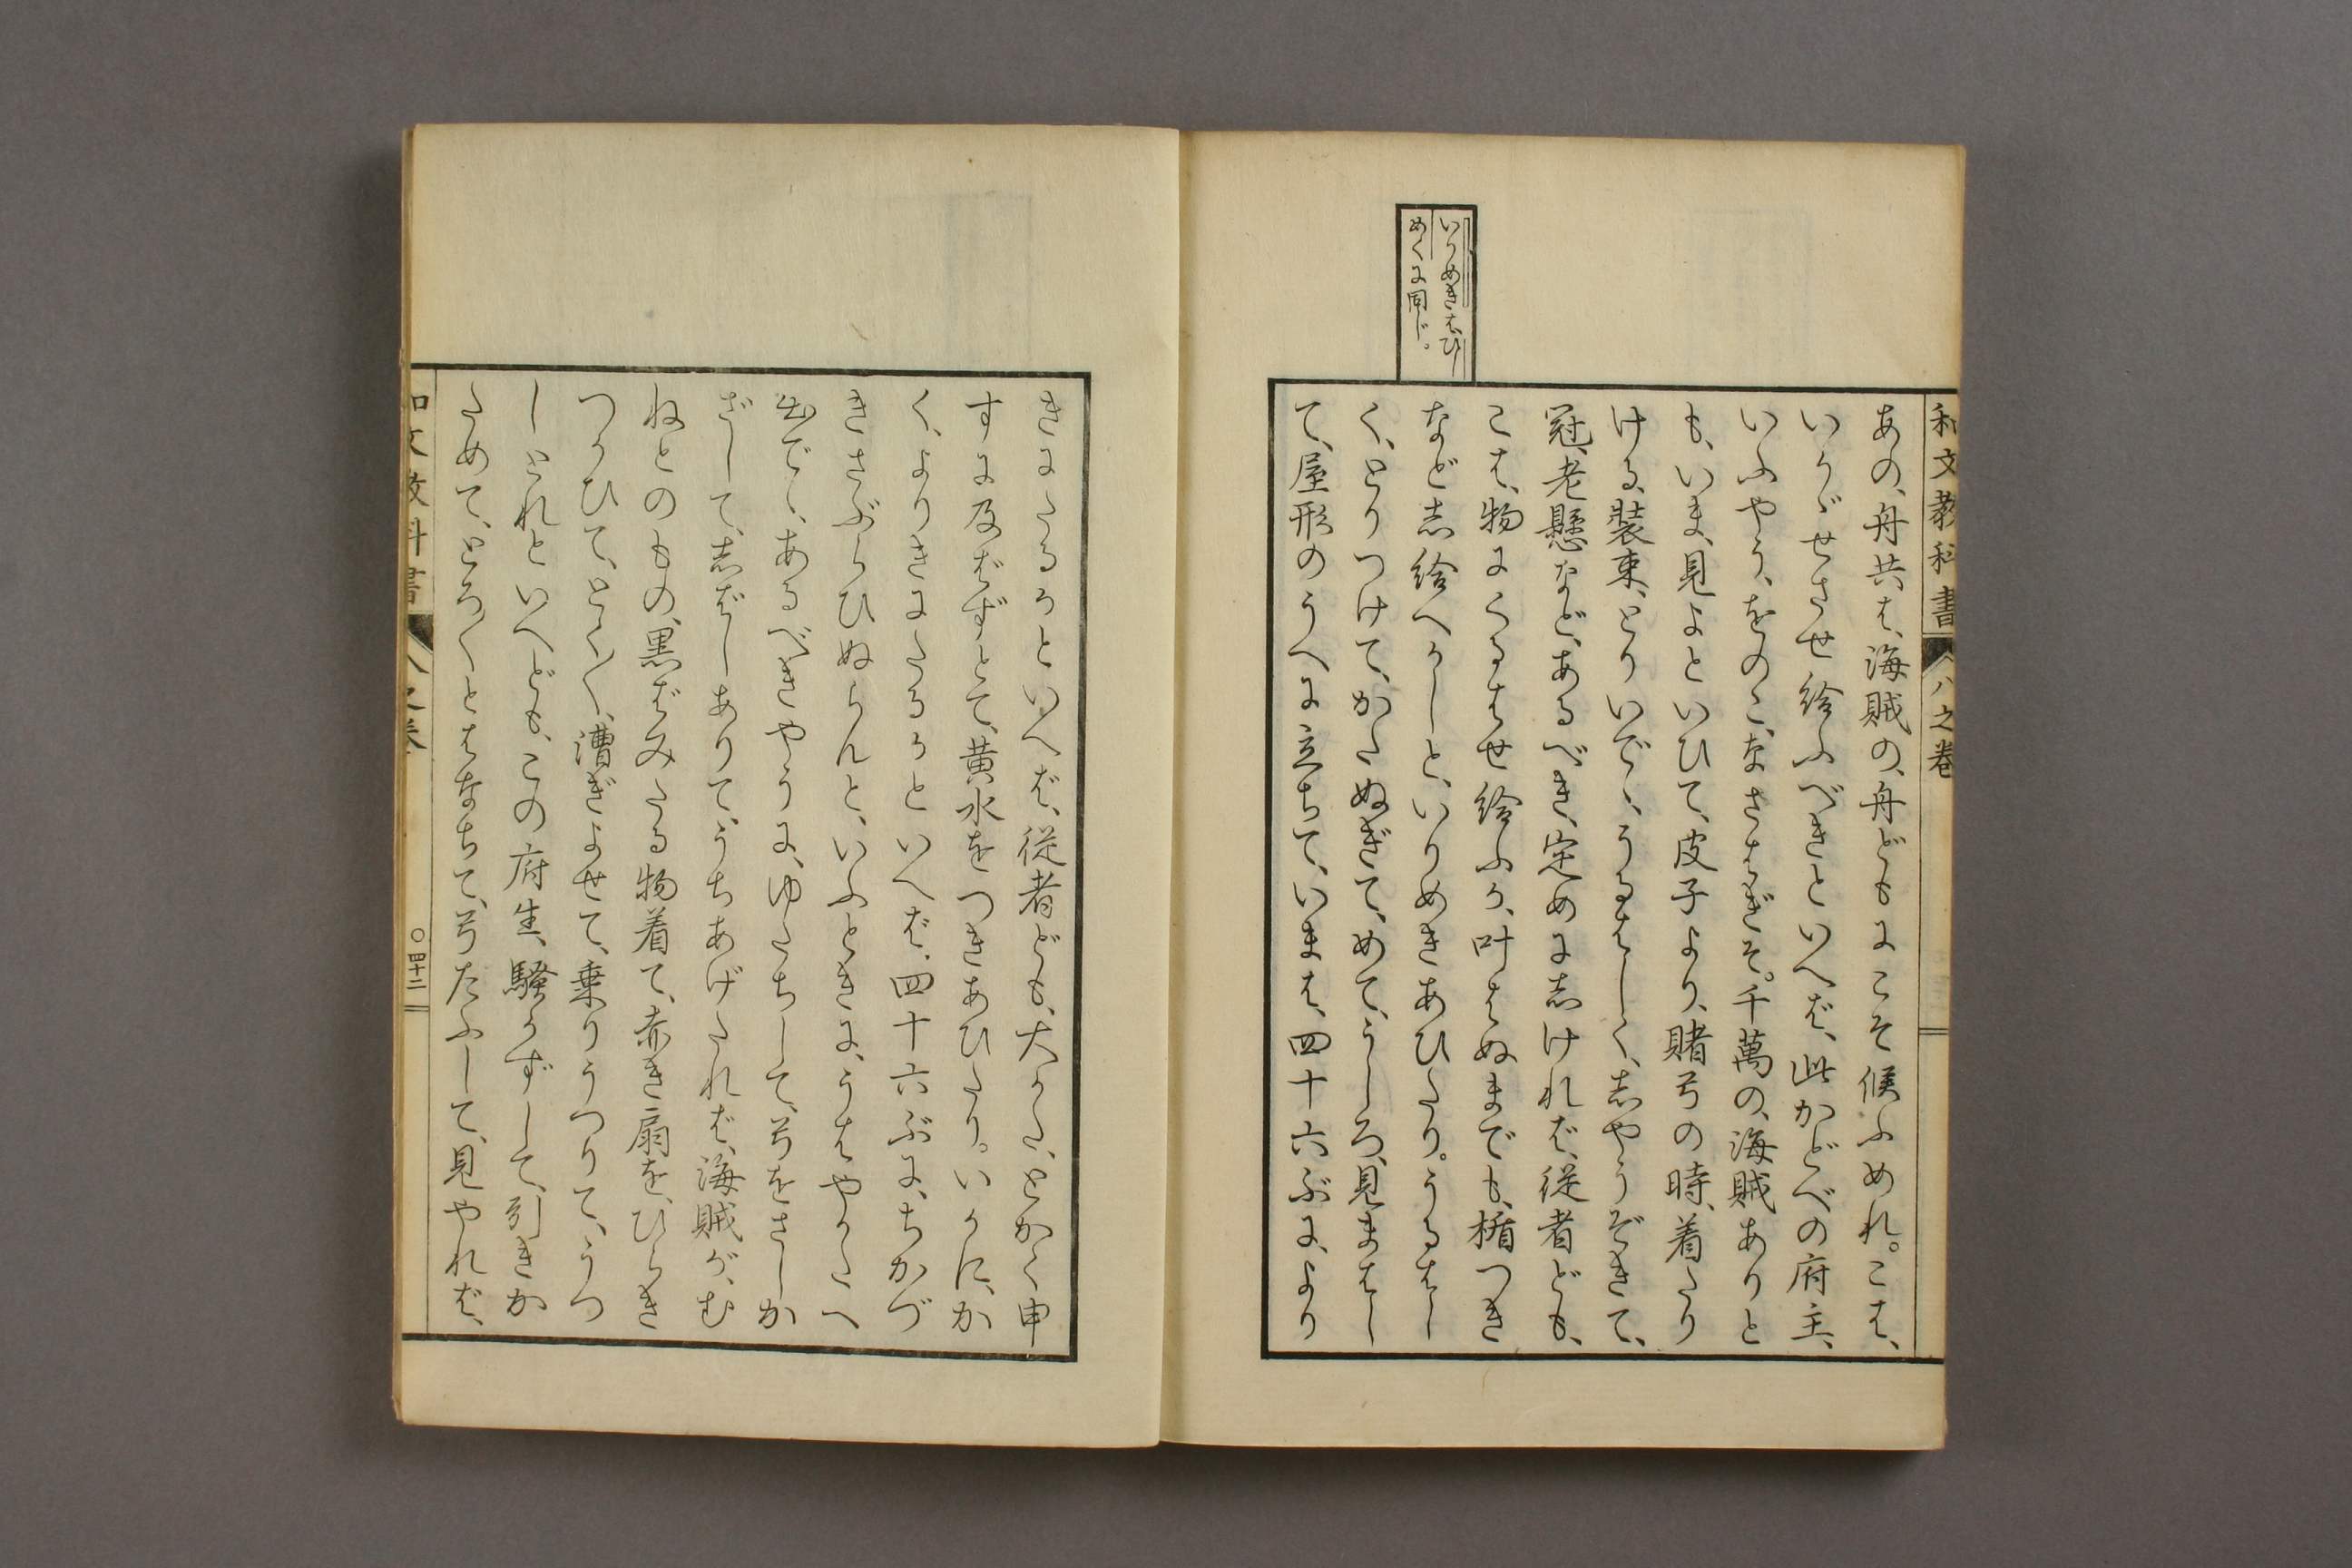 和文教科書 八之卷
いりめきあひ
めくに同じ。
あの、舟共は、海賊の、舟どもにこそ候ふめれ。こは、
いかゞせさせ給ふべきといへば、此かどべの府主、
いふやう、をのこ、なさはぎそ。千萬の、海賊ありと
も、いま、見よといひて、皮子より、賭弓の時、着たり
ける、裝束、とりいでゝ、うるはしく、志やうぞきて、
冠、老懸など、あるべき、定めに志ければ、従者ども、
こは、物にくるはせ給ふか、叶はぬまでも、楯つき
など志給へかしと、いりめきあひたり。うるはし
く、とりつけて、かたぬぎて、めて、うしろ、見まはし
て、屋形のうへに立ちて、いまは、四十六ぶに、より
きにたるかといへば、従者ども、大かた、とかく申
すに及ばずとて、黄水をつきあひたり。いかに、か
く、よりきにたるかといへば、四十六ぶに、ちかづ
きさぶらひぬらんと、いふときに、うはやかたへ
出でゝ、あるべきやうに、ゆだちして、弓をさしか
ざして、志ばしありて、うちあげたれば、海賊が、む
ねとのもの、黒ばみたる物着て、赤き扇を、ひらき
つかひて、とく〱、漕ぎよせて、乗りうつりて、うつ
しとれといへども、この府生、騒かずして、引きか
ためて、とろ〱とはなちて、弓たふして、見やれば、
和文教科書 八之卷
○四十三